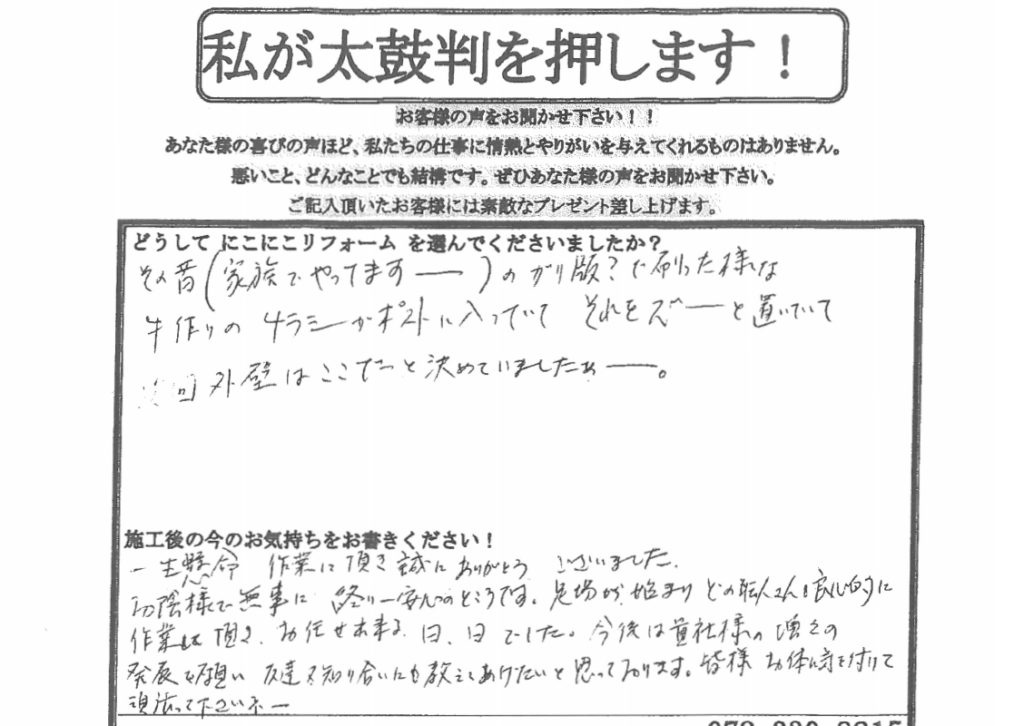 私が太鼓判を押します!
お客様の声をお聞かせ下さい!!
あなた様の喜びの声ほど、私たちの仕事に情熱とやりがいを与えてくれるものはありません。
悪いこと、どんなことでも結構です。ぜひあなた様の声をお聞かせ下さい。
ご記入頂いたお客様には素敵なプレゼント差し上げます。
どうして にこにこリフォーム を選んでくださいましたか?
その昔(家族でやってますー)のガリ版?で刷った様な
手作りのチラシがポストに入っていて それをズーと置いていて
回外壁はここだっと決めていましたぁー。
施工後の今のお気持ちをお書きください!
一生懸命 作業に頂き誠にありがとう ございました。
お陰様で無事に 終り一安心のところです。足場が始まりどの職人さんも良心的に
作業して頂き、お任せ出来る日、日でした。今後は貴社様の増々の
発展を願い 友達や知り合いにも教えてあげたいと思っております。皆様 お体に気を付けて
頑張って下さいネー